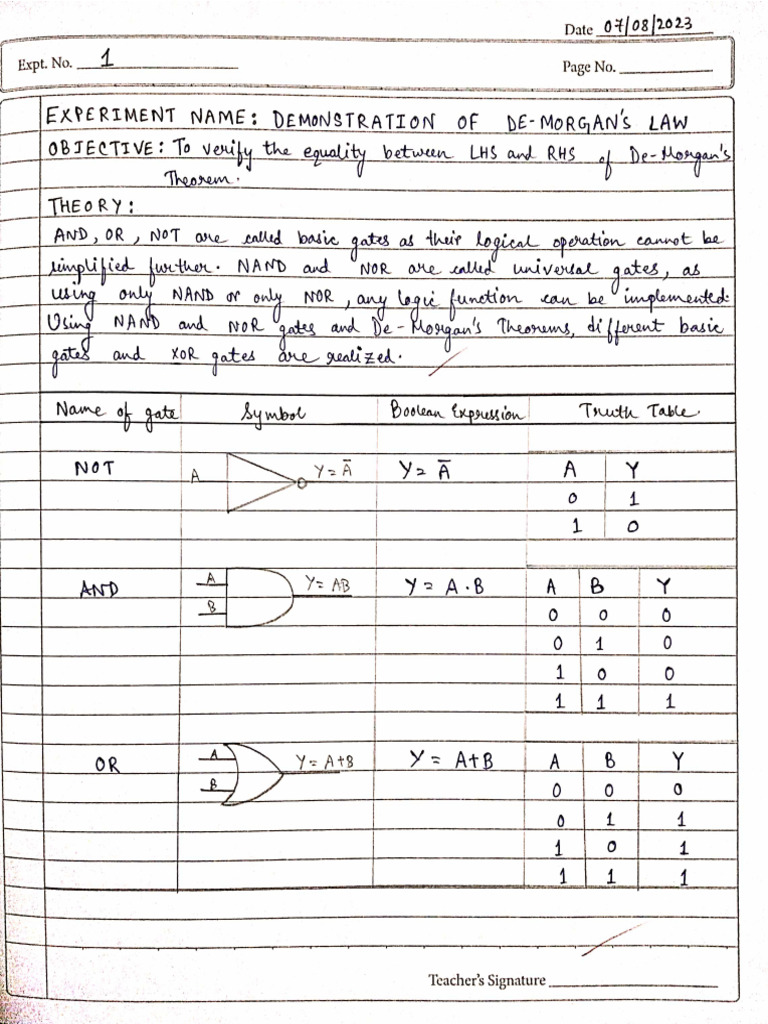 Date 07/08/2023
Expt. No. 1
Page No.
EXPERIMENT NAME: DEMONSTRATION OF DE-MORGAN'S LAW
OBJECTIVE: To verify the equality between LHS and RHS of De-Morgan's
Theorem.
THEORY:
AND, OR, NOT are called basic gates as their logical operation cannot be
simplified further. NAND and NOR are called universal gates, as
using only NAND or only NOR, any logic function can be implemented.
Using NAND and NOR gates and De-Morgan's Theorems, different basic
gates and XOR gates are realized.
Name of gate Symbol Boolean Expression Truth Table
NOT A Y = A̅ Y = A̅ A Y
0 1
1 0
AND A B Y = AB Y = A · B A B Y
0 0 0
0 1 0
1 0 0
1 1 1
OR A B Y = A+B Y = A+B A B Y
0 0 0
0 1 1
1 0 1
1 1 1
Teacher's Signature